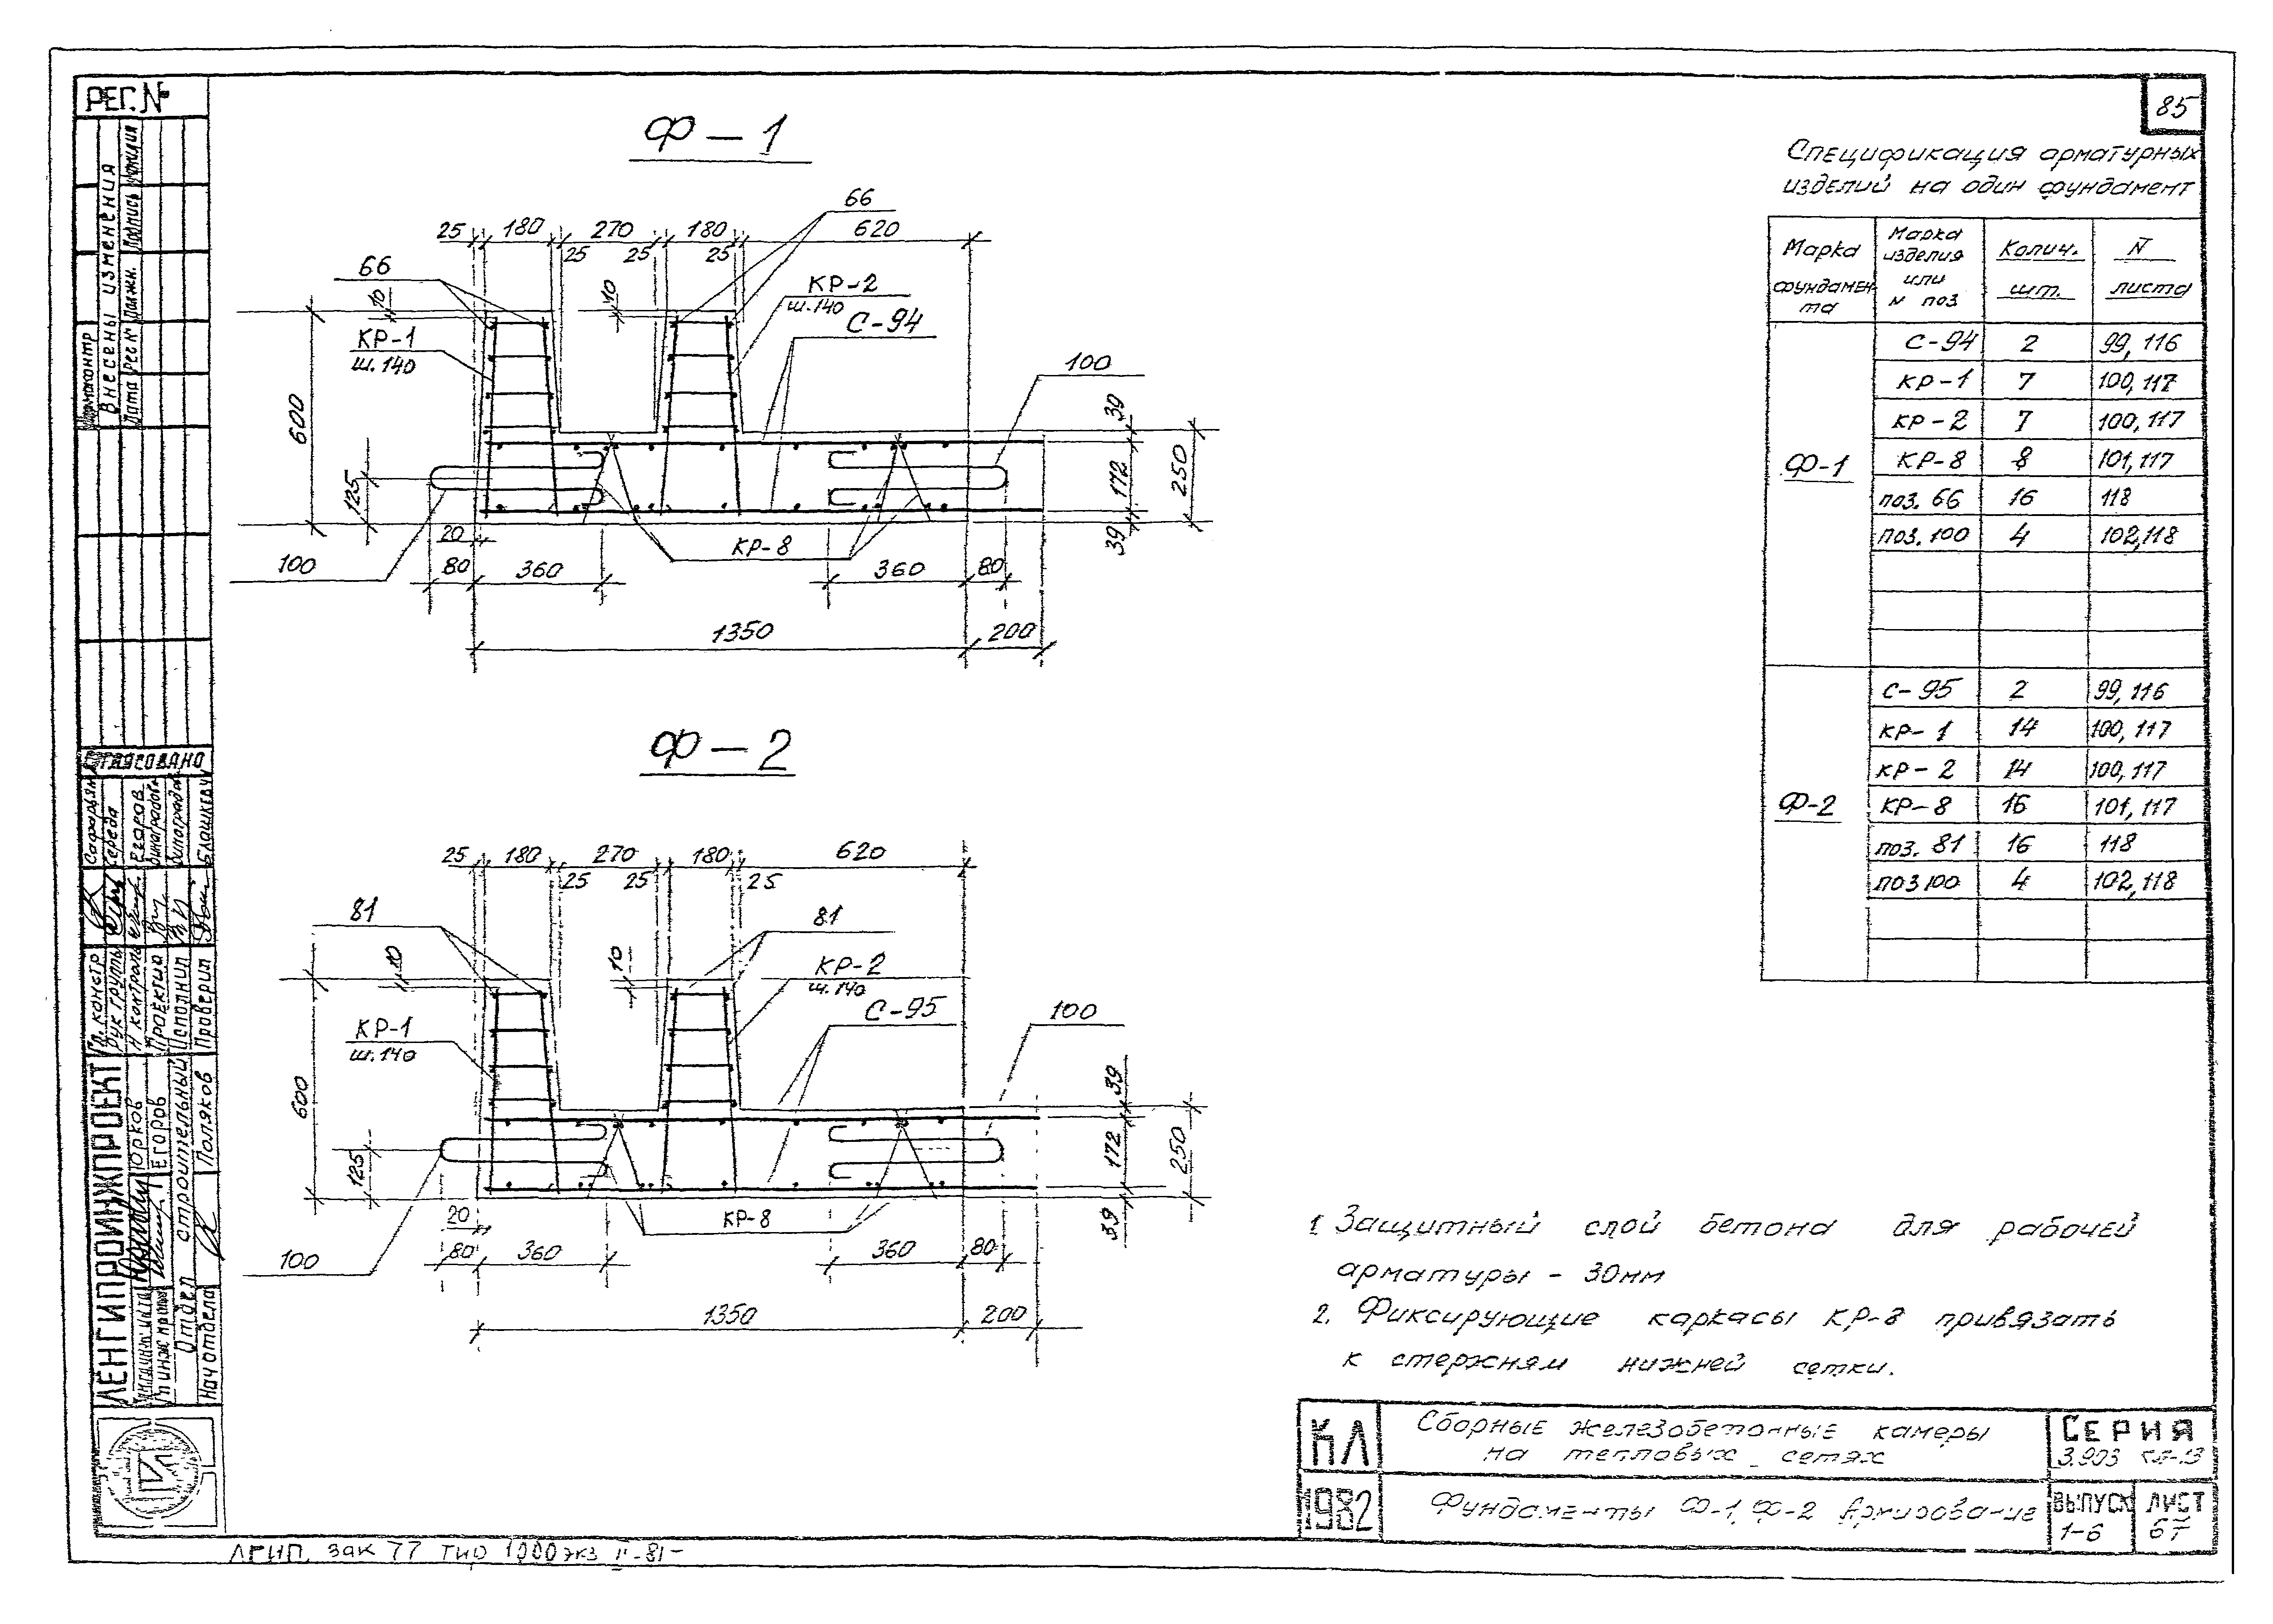 РЕГ. №
85
Внесены изменения
Нормоконтр
Дата
Рег №
Должн.
Подпись
Фамилия
Ф-1
66
25 180 270 180 620
25 25 25
66
10
10
КР-2
ш.140
С-94
КР-1
ш.140
100
600
125
39
172
250
39
20
КР-8
100
80 360 360 80
1350 200
Ф-2
25 180 270 180 620
25 25 25
81
81
10
10
КР-2
ш.140
С-95
КР-1
ш.140
100
600
125
39
172
250
39
20
КР-8
100
80 360 360 80
1350 200
Спецификация арматурных
изделий на один фундамент
Марка фундамен-та | Марка изделия или N поз | Колич. шт. | N листа
Ф-1
С-94 2 99, 116
КР-1 7 100, 117
КР-2 7 100, 117
КР-8 8 101, 117
поз. 66 16 118
поз. 100 4 102, 118
Ф-2
С-95 2 99, 116
КР-1 14 100, 117
КР-2 14 100, 117
КР-8 16 101, 117
поз. 81 16 118
поз 100 4 102, 118
1 Защитный слой бетона для рабочей
арматуры - 30мм
2. Фиксирующие каркасы КР-8 привязать
к стержням нижней сетки.
КЛ
Сборные железобетонные камеры
на тепловых сетях
СЕРИЯ
3.903
1982
Фундаменты Ф-1, Ф-2 Армирование
ВЫПУСК
1-6
ЛИСТ
Согласовано
Гл. констр
Рук группы Середа
Н контроль Егоров
Проектир
Исполнил
Проверил Блашкевич
ЛЕНГИПРОИНЖПРОЕКТ
Юрков
Егоров
Отдел строительный
Нач отдела Поляков
ЛГИП. зак 77 тир 1000 экз II-81-